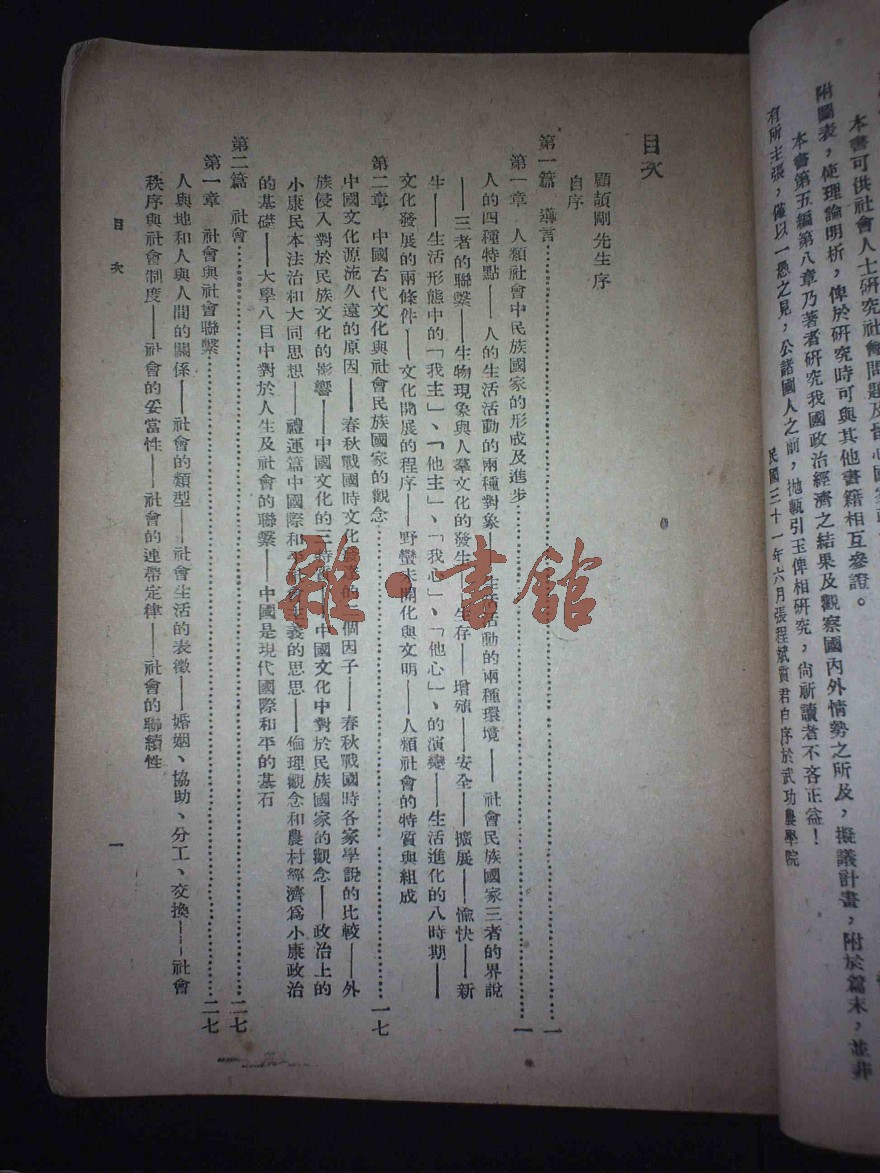 本書可供社會人士研究社會問題及
附圖表，使理論明析，俾於研究時可與其他書籍相互參證。
本書第五編第八章乃著者研究我國政治經濟之結果及觀察國內外情勢之所及，擬議計畫，附於篇末，並非
有所主張，僅以一愚之見，公諸國人之前，拋甎引玉俾相研究，尙祈讀者不吝正益！
民國三十一年六月張程斌質君自序於武功農學院
目次
顧頡剛先生序
自序
第一篇 導言……一
第一章 人類社會中民族國家的形成及進步……一
人的四種特點——人的生活活動的兩種對象——生活活動的兩種環境——社會民族國家三者的界說
——三者的聯繫——生物現象與人羣文化的發生——生存——增殖——安全——擴展——愉快——新
生——生活形態中的「我主」、「他主」、「我心」、「他心」、的演變——生活進化的八時期——
文化發展的兩條件——文化開展的程序——野蠻未開化與文明——人類社會的特質與組成
第二章 中國古代文化與社會民族國家的觀念……一七
中國文化源流久遠的原因——春秋戰國時文化 的 個因子——春秋戰國時各家學說的比較——外
族侵入對於民族文化的影響——中國文化的三特質——中國文化中對於民族國家的觀念——政治上的
小康民本法治和大同思想——禮運篇中國際和平社會主義的思思——倫理觀念和農村經濟爲小康政治
的基礎——大學八目中對於人生及社會的聯繫——中國是現代國際和平的基石
第二篇 社會……二七
第一章 社會與社會聯繫……二七
人與地和人與人間的關係——社會的類型——社會生活的表徵——婚姻、協助、分工、交換——社會
秩序與社會制度——社會的妥當性——社會的連帶定律——社會的聯續性
目 次
一
雜·書館